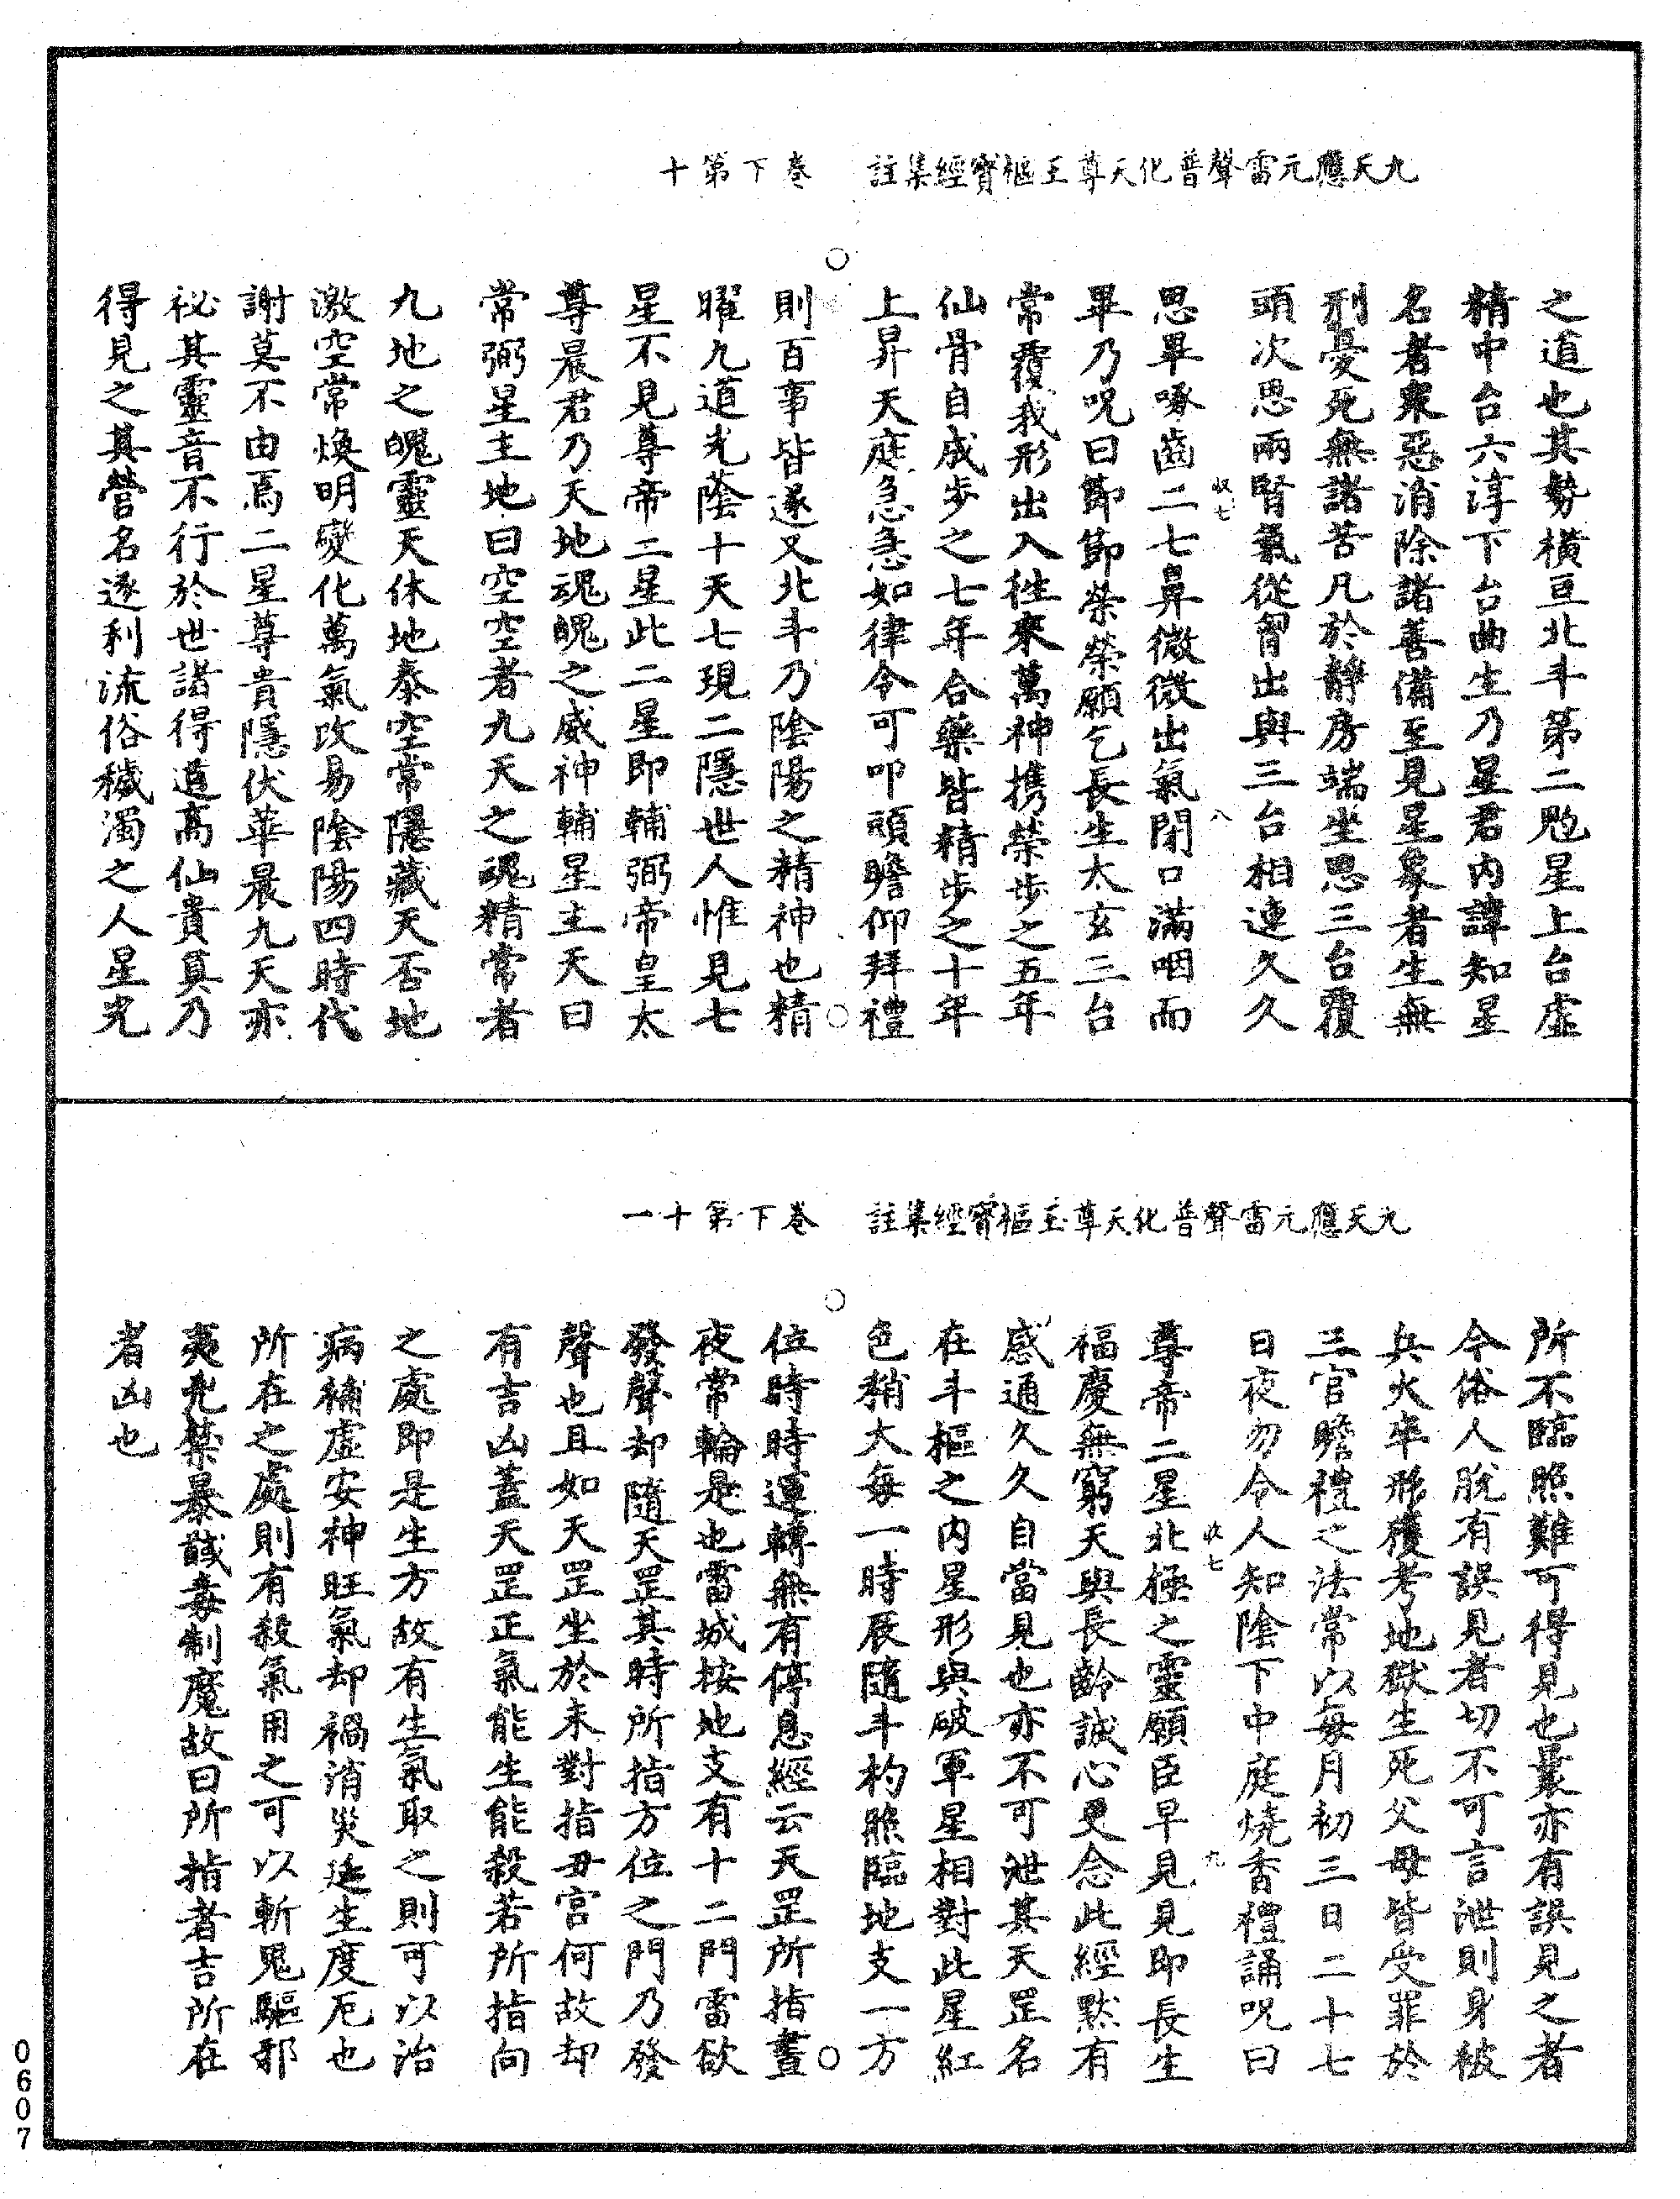 九天應元雷聲普化天尊玉樞寶經集註 卷下第十
之道也其勢橫亘北斗第二魁星上台虛
精中台六淳下台曲生乃星君內諱知星
名者衆惡消除諸善備至見星象者生無
刑憂死無諸苦凡於靜房端坐思三台覆
頭次思兩腎氣從胷出與三台相連久久
八
思畢啄齒二七鼻微微出氣閉口滿咽而
畢乃呪曰節節榮榮願乞長生太玄三台
常覆我形出入徃來萬神携榮步之五年
仙骨自成步之七年合藥皆精步之十年
上昇天庭急急如律令可叩頭瞻仰拜禮
則百事皆遂又北斗乃陰陽之精神也精
曜九道光蔭十天七現二隱世人惟見七
星不見尊帝二星此二星即輔弼帝皇太
尊晨君乃天地魂魄之威神輔星主天曰
常弼星主地曰空空者九天之魂精常者
九地之魄靈天休地泰空常隱藏天否地
激空常煥明變化萬氣改易陰陽四時代
謝莫不由焉二星尊貴隱伏華晨九天亦
祕其靈音不行於世諸得道高仙貴真乃
得見之其營名逐利流俗穢濁之人星光
九天應元雷聲普化天尊玉樞寶經集註 卷下第十一
所不臨照難可得見也曩亦有誤見之者
今俗人脫有誤見者切不可言泄則身被
兵火卒形獲考地獄生死父母皆受罪於
三官瞻禮之法常以每月初三日二十七
日夜勿令人知陰下中庭燒香禮誦呪曰
九
尊帝二星北極之靈願臣早見見即長生
福慶無窮天與長齡誠心更念此經黙有
感通久久自當見也亦不可泄其天罡名
在斗樞之內星形與破軍星相對此星紅
色稍大每一時辰隨斗杓照臨地支一方
位時時運轉無有停息經云天罡所指晝
夜常輪是也雷城按地支有十二門雷欲
發聲却隨天罡其時所指方位之門乃發
聲也且如天罡坐於未對指丑宮何故却
有吉凶蓋天罡正氣能生能殺若所指向
之處即是生方故有生氣取之則可以治
病補虛安神旺氣却禍消災延生度厄也
所在之處則有殺氣用之可以斬鬼驅邪
夷兇禁暴馘毒制魔故曰所指者吉所在
者凶也
0607